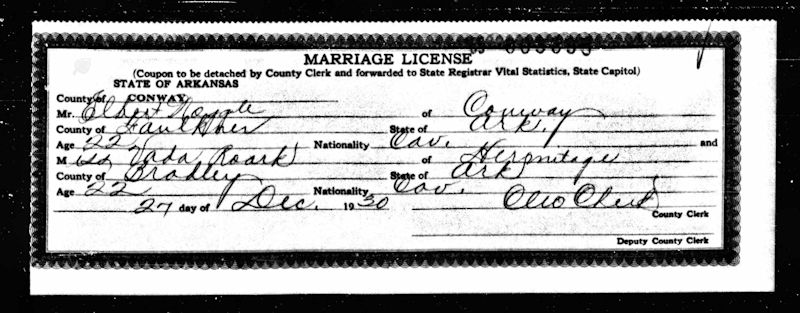 MARRIAGE LICENSE
(Coupon to be detached by County Clerk and forwarded to State Registrar Vital Statistics, State Capitol)
STATE OF ARKANSAS
County of CONWAY
Mr. Elbert of Conway
County of Faulkner State of Ark.
Age 22 Nationality Cav. and
Miss Vada Roark of Hermitage
County of Bradley State of Ark
Age 22 Nationality Cav.
27 day of Dec. 1930 Cleo
County Clerk
Deputy County Clerk